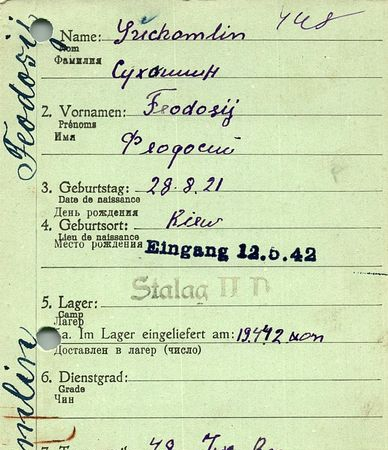 Feodosij
Name:
Nom
Фамилия
2. Vornamen: Feodosij
Prénoms
Имя
Феодосий
3. Geburtstag: 28.8.21
Date de naissance
День рождения
4. Geburtsort: Kiew
Lieu de naissance
Место рождения
Eingang 12.5.42
Stalag II D
5. Lager:
Camp
Лагерь
a. Im Lager eingeliefert am:
Доставлен в лагерь (число)
6. Dienstgrad:
Grade
Чин
mlin